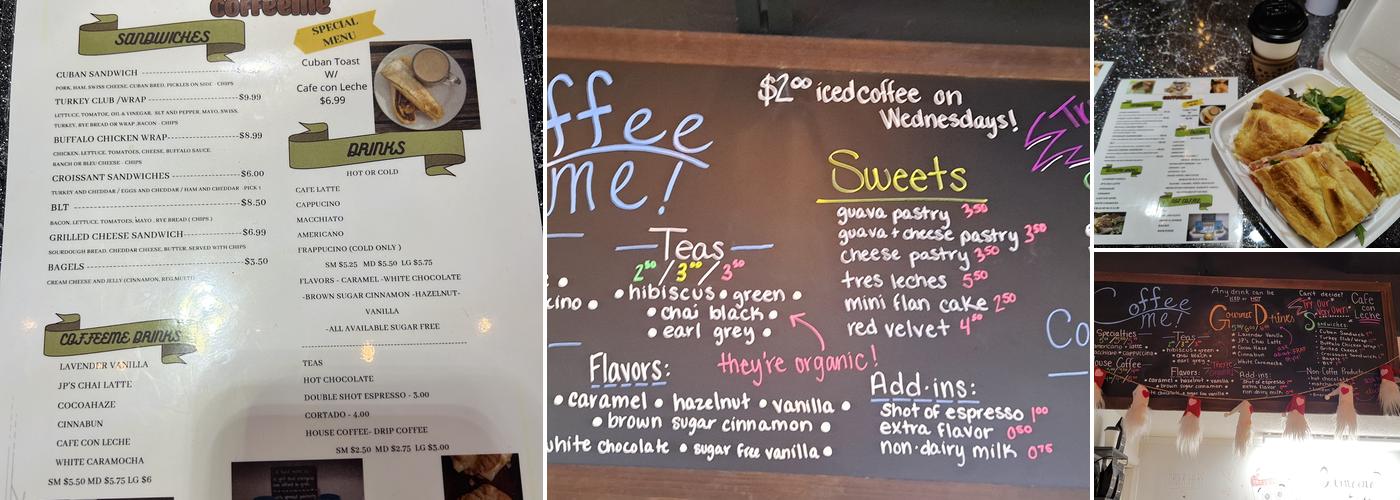 Coffeeme
SANDWICHES
CUBAN SANDWICH
PORK, HAM, SWISS CHEESE, CUBAN BRED, PICKLES ON SIDE · CHIPS
TURKEY CLUB /WRAP $9.99
LETTUCE, TOMATOE, OIL & VINEGAR, SLT AND PEPPER, MAYO, SWISS,
TURKEY, RYE BREAD OR WRAP ,BACON · CHIPS
BUFFALO CHICKEN WRAP $8.99
CHICKEN, LETTUCE, TOMATOES, CHEESE, BUFFALO SAUCE,
RANCH OR BLEU CHEESE · CHIPS
CROISSANT SANDWICHES $6.00
TURKEY AND CHEDDAR / EGGS AND CHEDDAR / HAM AND CHEDDAR · PICK 1
BLT $8.50
BACON, LETTUCE, TOMATOES, MAYO . RYE BREAD ( CHIPS )
GRILLED CHEESE SANDWICH $6.99
SOURDOUGH BREAD, CHEDDAR CHEESE, BUTTER, SERVED WITH CHIPS
BAGELS $3.50
CREAM CHEESE AND JELLY (CINNAMON, REG,MULTI)
COFFEEME DRINKS
LAVENDER VANILLA
JP'S CHAI LATTE
COCOAHAZE
CINNABUN
CAFE CON LECHE
WHITE CARAMOCHA
SM $5.50 MD $5.75 LG $6
SPECIAL
MENU
Cuban Toast
W/
Cafe con Leche
$6.99
DRINKS
HOT OR COLD
CAFE LATTE
CAPPUCINO
MACCHIATO
AMERICANO
FRAPPUCINO (COLD ONLY )
SM $5.25 MD $5.50 LG $5.75
FLAVORS - CARAMEL -WHITE CHOCOLATE
-BROWN SUGAR CINNAMON -HAZELNUT-
VANILLA
-ALL AVAILABLE SUGAR FREE
TEAS
HOT CHOCOLATE
DOUBLE SHOT ESPRESSO - 3.00
CORTADO - 4.00
HOUSE COFFEE- DRIP COFFEE
SM $2.50 MD $2.75 LG $3.00
ffee
me!
$2.00 iced coffee on
Wednesdays!
Teas
2.50/3.00/3.50
• hibiscus • green •
• chai black •
• earl grey •
they're organic!
Flavors:
• caramel • hazelnut • vanilla •
• brown sugar cinnamon •
white chocolate • sugar free vanilla •
Sweets
guava pastry 3.50
guava + cheese pastry 3.50
cheese pastry 3.50
tres leches 5.50
mini flan cake 2.50
red velvet 4.50
Add-ins:
shot of espresso 1.00
extra flavor 0.50
non-dairy milk 0.75
Co
Coffee
me!
Any drink can be
ICED or HOT
Can't decide?
Try our
very own!
Cafe
con
Leche
Specialties
Teas
• hibiscus • green •
• chai black •
• earl grey •
Flavors:
• caramel • hazelnut • vanilla •
• brown sugar cinnamon •
Gourmet Drinks
Lavender Vanilla
JP's Chai Latte
Cocoa Haze
Cinnabun
White Caramocha
Add-ins:
shot of espresso
extra flavor
non dairy milk
Sandwiches:
Cuban Sandwich
Turkey Club/Wrap
Buffalo Chicken Wrap
Grilled Cheese
Croissant Sandwich
Non Coffee Products
hot chocolate